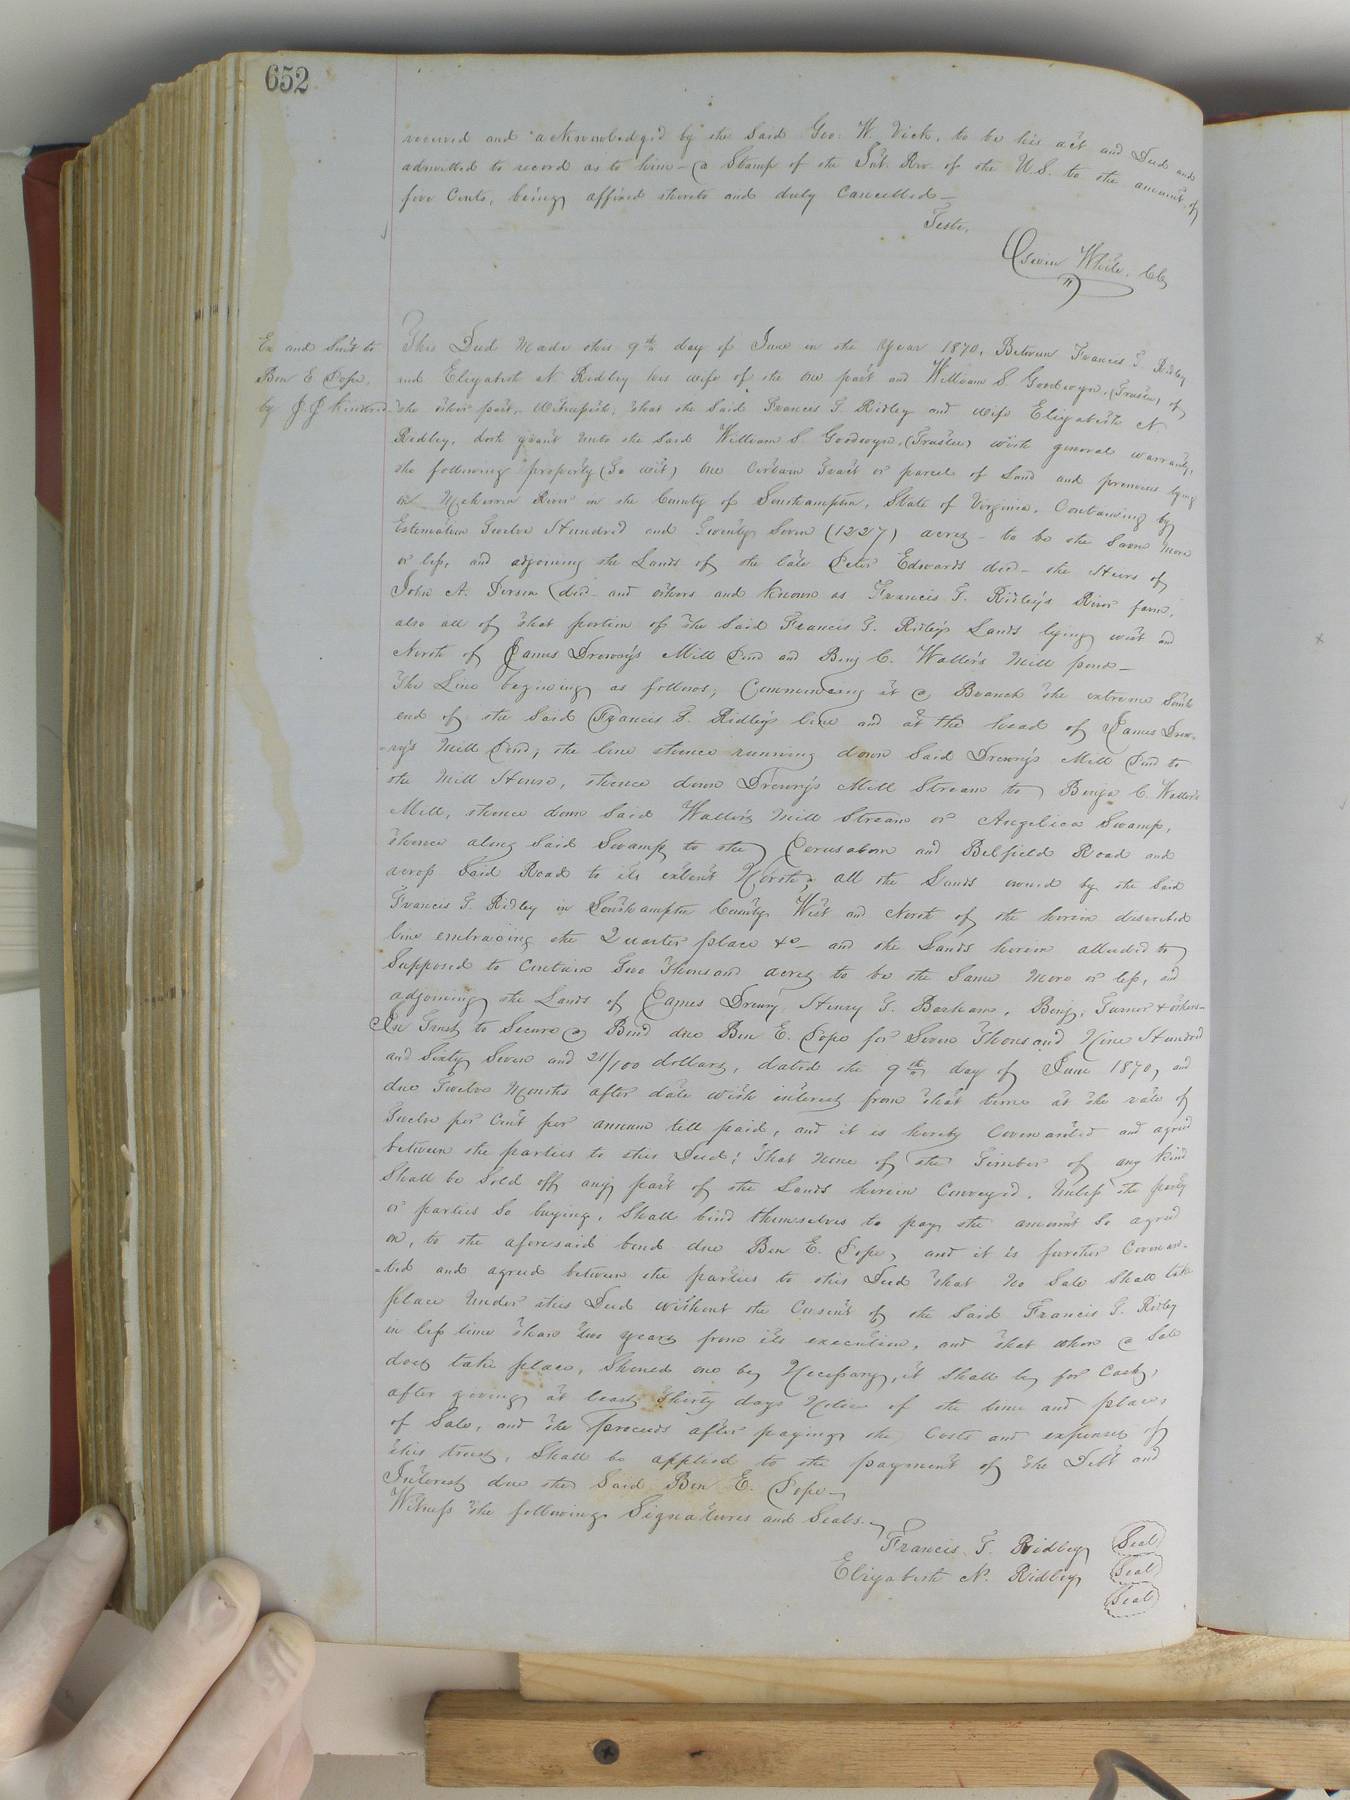 652
received and acknowledged by the said Geo. W. Vick, to be his act and Deed and
admitted to record as to him — (a Stamp of the Int. Rev. of the U.S. to the amount of
five Cents, being affixed thereto and duly Cancelled —
Teste,
White. Clk
Ex and Sent to
Ben E Pope,
by J. J Kindred
This Deed Made this 9th day of June in the year 1870, Between Francis T. Ridley
and Elizabeth N Ridley his wife of the one part and William S. Goodwyn, (Trustee) of
the other part, Witnesseth; that the said Francis T. Ridley and wife Elizabeth N
Ridley, doth grant unto the said William S. Goodwyn, (Trustee) with general warranty,
the following property (To wit) one Certain Tract or parcel of Land and premises lying
on Meherrin River in the County of Southampton, State of Virginia, Containing by
Estemation Twelve Hundred and Twenty Seven (1227) acres - to be the Same more
or less, and adjoining the Lands of the late Peter Edwards decd - the Heirs of
John A. Person decd - and others and Known as Francis T. Ridley's River farm,
also all of that portion of the Said Francis T. Ridley's Lands lying west and
North of James Drewry's Mill Pond and Benj C. Waller's Mill pond —
The Line begining as follows; Commencing at a Branch the extreme South
end of the Said Francis T. Ridley's line and at the head of James Drew-
-ry's Mill Pond; the line thence running down Said Drewry's Mill Pond to
the Mill House, thence down Drewry's Mill Stream to Benja C. Waller's
Mill, thence down Said Waller's Mill Stream or Angelica Swamp,
thence along Said Swamp to the Jerusalem and Belfield Road and
across Said Road to its extent North; all the Lands owned by the Said
Francis T. Ridley in Southampton County West and North of the herein described
line embracing the Quarter place &c — and the Lands herein alluded to
Supposed to Contain Two Thousand acres to be the Same More or less, and
adjoining the Lands of James Drewry, Henry T. Barham, Benj. Turner & others—
In Trust to Secure a Bond due Ben E. Pope for Seven Thousand Nine Hundred
and Sixty Seven and 21/100 dollars, dated the 9th day of June 1870, and
due Twelve Months after date with interest from that time at the rate of
Twelve per Cent per annum till paid, and it is hereby Covenanted and agreed
between the parties to this Deed; That None of the Timber of any kind
Shall be Sold off any part of the Lands herein Conveyed, Unless the party
or parties So buying, Shall bind themselves to pay the amount So agreed
on, to the aforesaid bond due Ben E. Pope, and it is further Covenan-
-ted and agreed between the parties to this Deed that No Sale Shall take
place Under this Deed without the Consent of the Said Francis T. Ridley
in less time than two years from its execution, and that when a Sale
does take place, Should one be Necessary, it Shall be for Cash,
after giving at least Thirty days Notice of the time and place
of Sale, and the proceeds after paying the Costs and expenses of
this trust, Shall be applied to the payment of the Debt and
Interest due the Said Ben E. Pope —
Witness the following Signatures and Seals.
Francis T. Ridley Seal
Elizabeth N. Ridley Seal
Seal